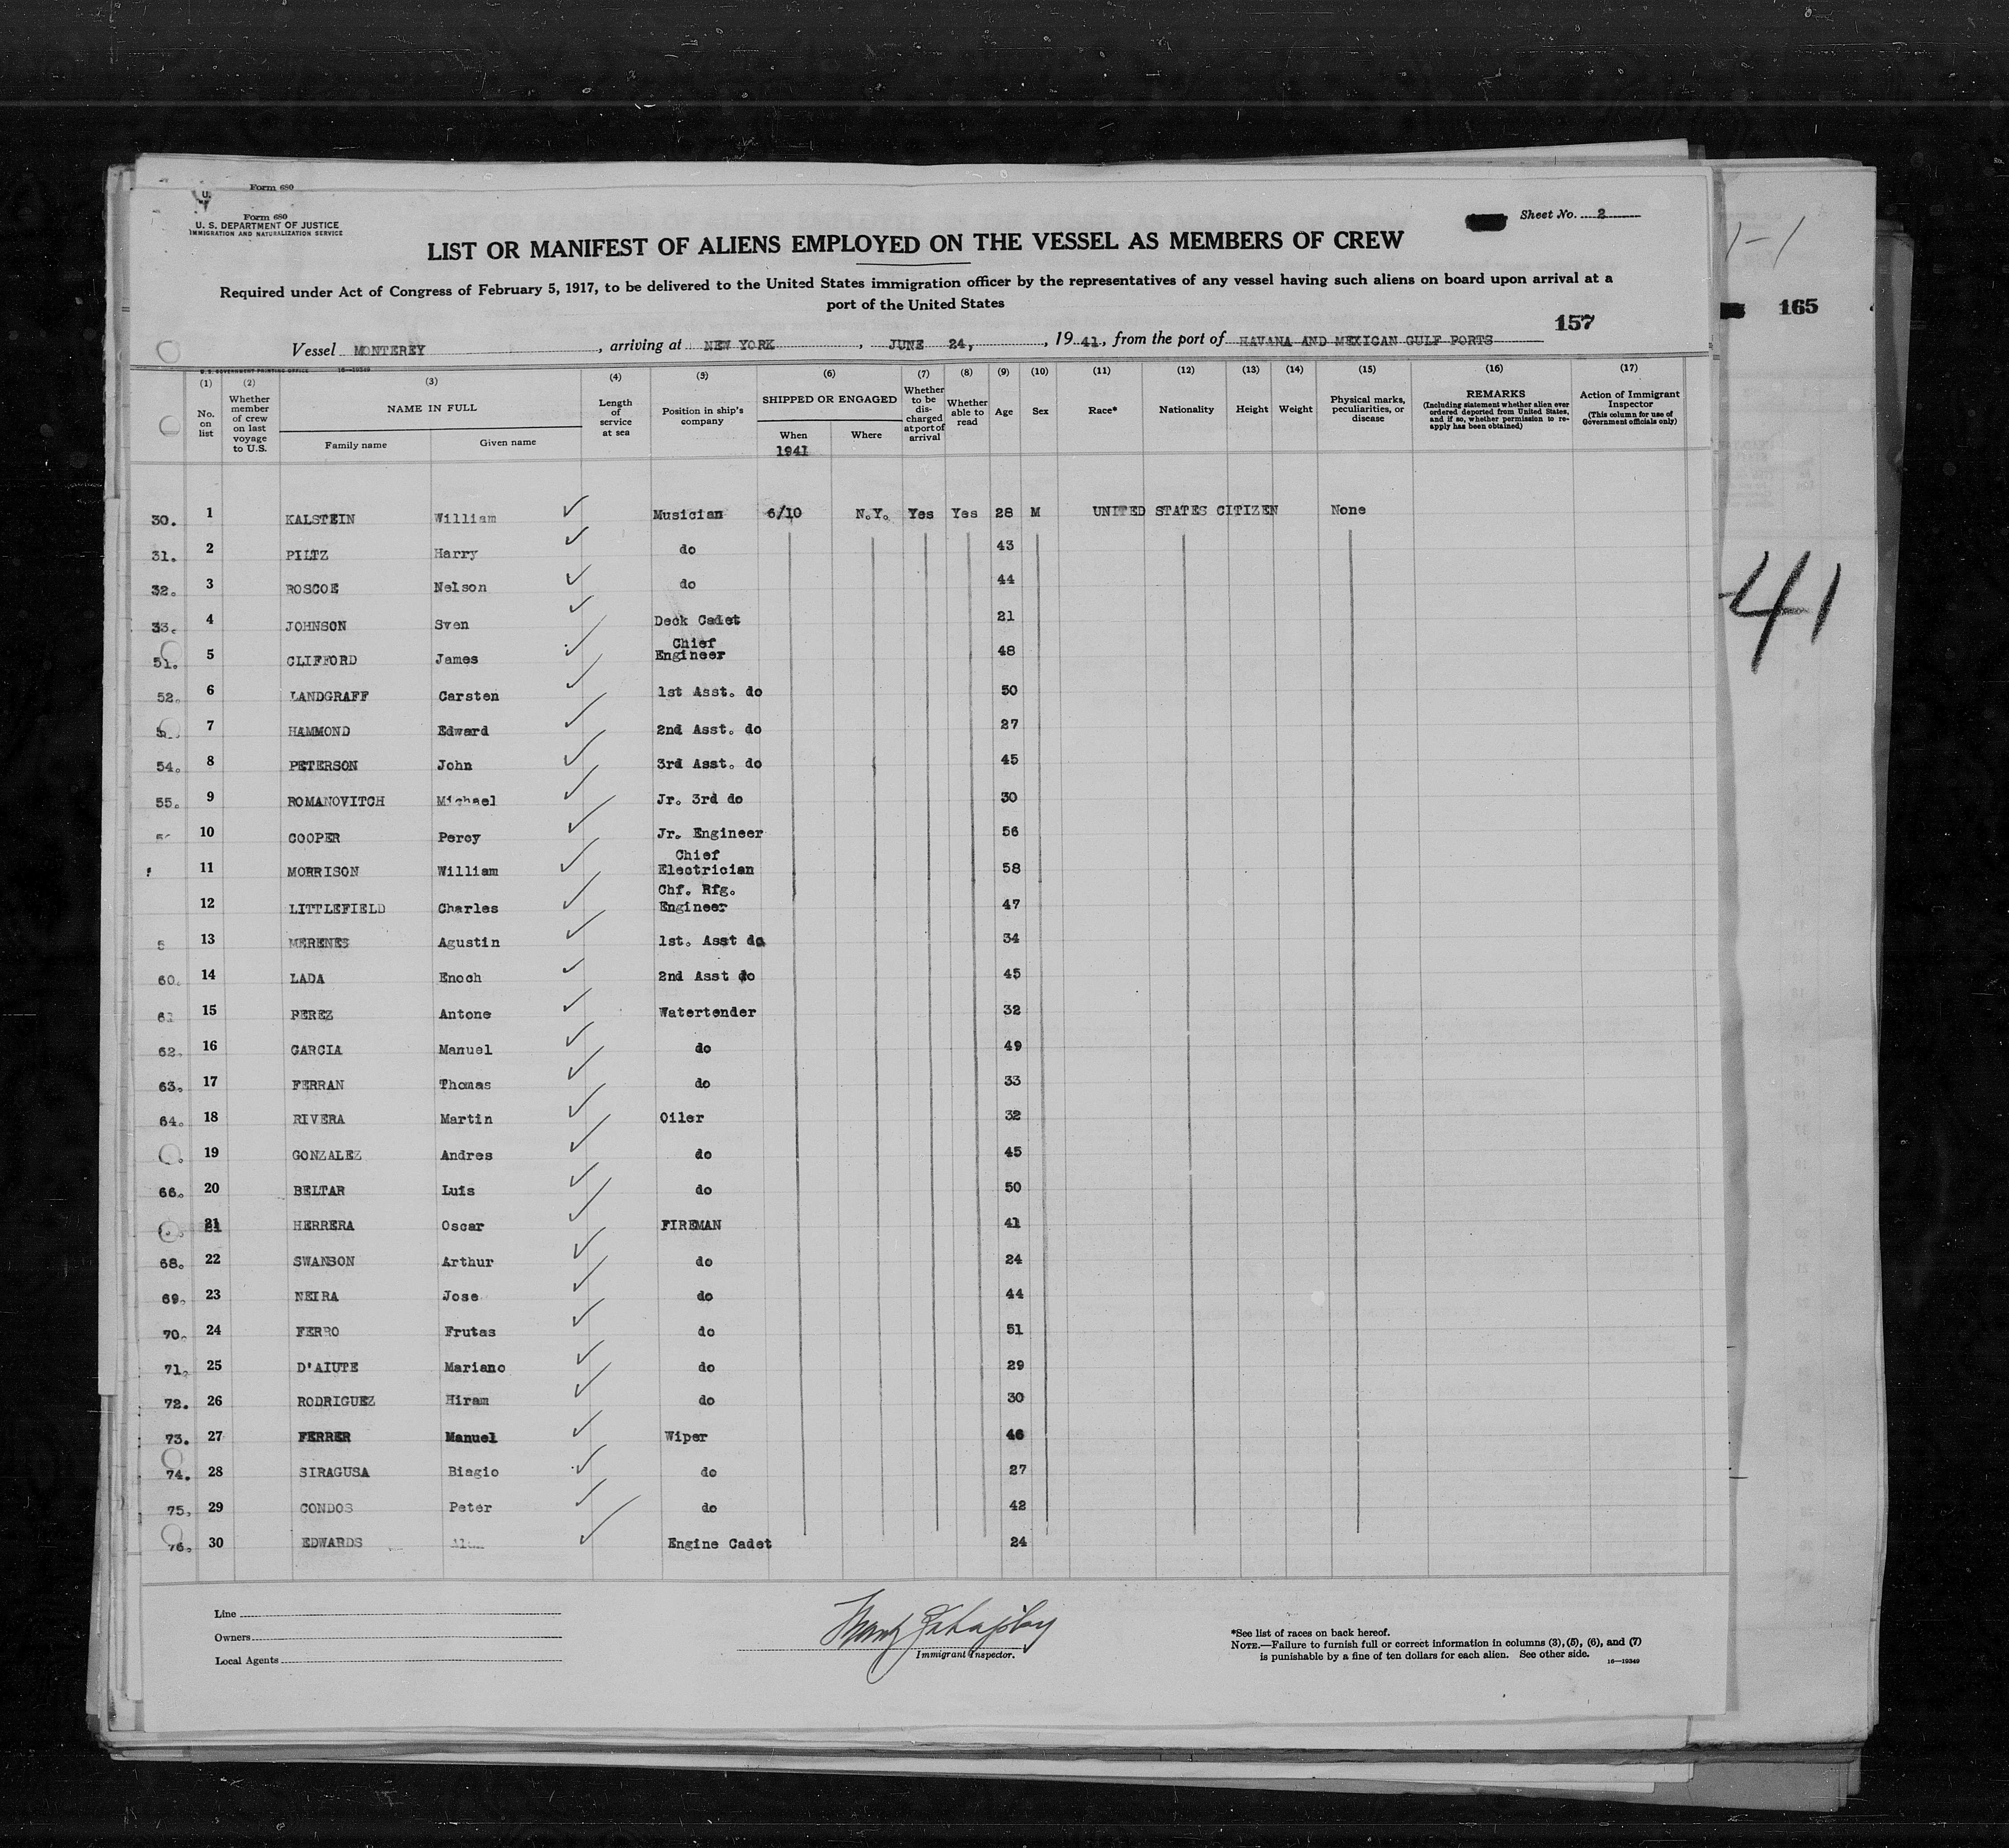 Form 680
Form 680
U. S. DEPARTMENT OF JUSTICE
IMMIGRATION AND NATURALIZATION SERVICE
Sheet No. 2
LIST OR MANIFEST OF ALIENS EMPLOYED ON THE VESSEL AS MEMBERS OF CREW
Required under Act of Congress of February 5, 1917, to be delivered to the United States immigration officer by the representatives of any vessel having such aliens on board upon arrival at a
port of the United States
1-1
165
157
Vessel MONTEREY, arriving at NEW YORK, JUNE 24, 1941, from the port of HAVANA AND MEXICAN GULF PORTS
U. S. GOVERNMENT PRINTING OFFICE 16—19349
(1) No. on list
(2) Whether member of crew on last voyage to U.S.
(3) NAME IN FULL Family name Given name
(4) Length of service at sea
(5) Position in ship's company
(6) SHIPPED OR ENGAGED When 1941 Where
(7) Whether to be discharged at port of arrival
(8) Whether able to read
(9) Age
(10) Sex
(11) Race*
(12) Nationality
(13) Height
(14) Weight
(15) Physical marks, peculiarities, or disease
(16) REMARKS (Including statement whether alien ever ordered deported from United States, and if so, whether permission to reapply has been obtained)
(17) Action of Immigrant Inspector (This column for use of Government officials only)
30. 1 KALSTEIN William Musician 6/10 N.Y. Yes Yes 28 M UNITED STATES CITIZEN None
31. 2 PILTZ Harry do 43
32. 3 ROSCOE Nelson do 44
33. 4 JOHNSON Sven Deck Cadet 21
51. 5 CLIFFORD James Chief Engineer 48
52. 6 LANDGRAFF Carsten 1st Asst. do 50
7 HAMMOND Edward 2nd Asst. do 27
54. 8 PETERSON John 3rd Asst. do 45
55. 9 ROMANOVITCH Michael Jr. 3rd do 30
10 COOPER Percy Jr. Engineer 56
11 MORRISON William Chief Electrician 58
12 LITTLEFIELD Charles Chf. Rfg. Engineer 47
13 MERENES Agustin 1st. Asst do 34
60. 14 LADA Enoch 2nd Asst do 45
61 15 PEREZ Antone Watertender 32
62. 16 GARCIA Manuel do 49
63. 17 FERRAN Thomas do 33
64. 18 RIVERA Martin Oiler 32
19 GONZALEZ Andres do 45
66. 20 BELTAR Luis do 50
21 HERRERA Oscar FIREMAN 41
68. 22 SWANSON Arthur do 24
69. 23 NEIRA Jose do 44
70. 24 FERRO Frutas do 51
71. 25 D'AIUTE Mariano do 29
72. 26 RODRIGUEZ Hiram do 30
73. 27 FERRER Manuel Wiper 46
74. 28 SIRAGUSA Biagio do 27
75. 29 CONDOS Peter do 42
76. 30 EDWARDS Engine Cadet 24
41
Line
Owners
Local Agents
Immigrant Inspector.
*See list of races on back hereof.
NOTE.—Failure to furnish full or correct information in columns (3), (5), (6), and (7)
is punishable by a fine of ten dollars for each alien. See other side.
16—19349